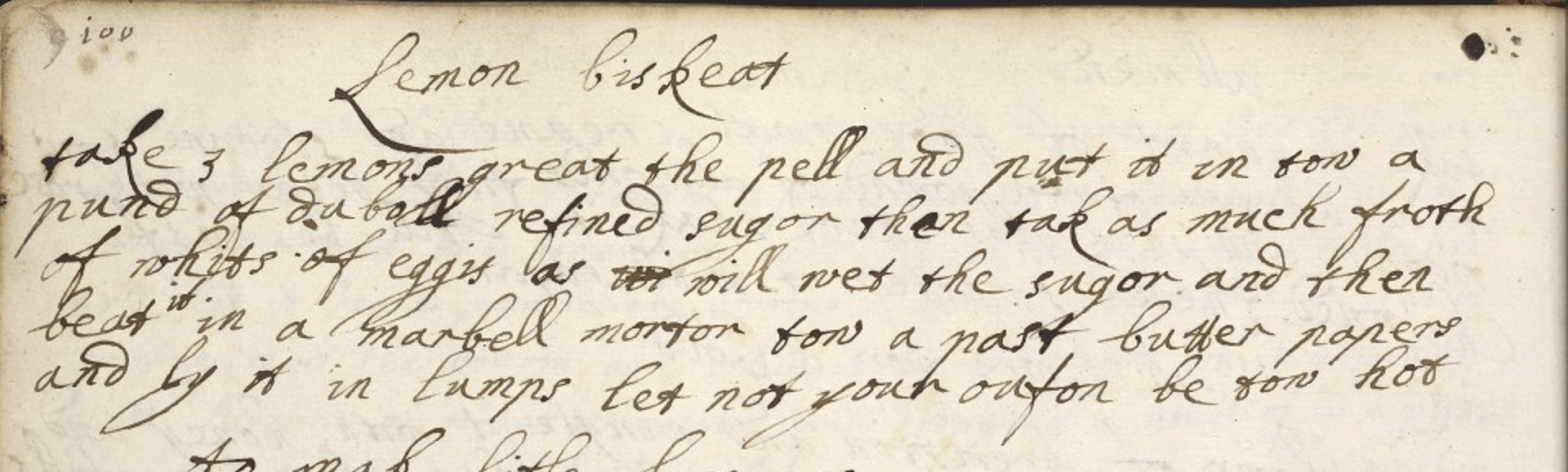 100
Lemon biskeat
take 3 lemons great the pell and put it in tow a
pund of duboll refined sugor then tak as much froth
of whits of eggis as will wet the sugor and then
beat it in a marbell mortor tow a past butter papers
and ly it in lumps let not your oufon be tow hot
To mak litle